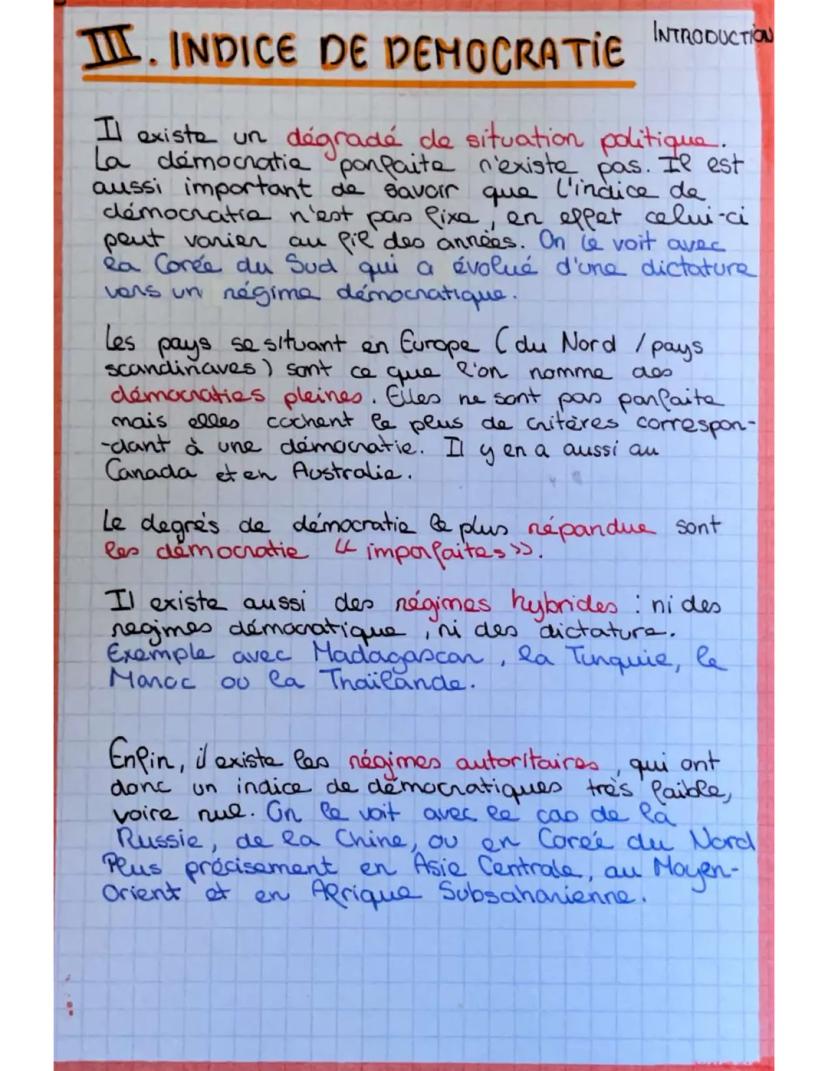 III. INDICE DE DEMOCRATIE
INTRODUCTION
Il existe un dégradé de situation politique.
La démocratie parfaite n'existe pas. Il est
aussi important de savoir que l'indice de
démocratie n'est pas fixe, en effet celui-ci
peut varier au fil des années. On le voit avec
la Corée du Sud qui a évolué d'une dictature
vers un régime démocratique.
Les pays se situant en Europe (du Nord / pays
scandinaves) sont ce que l'on nomme des
démocraties pleines. Elles ne sont pas parfaite
mais elles cochent le plus de critères correspon-
-dant à une démocratie. Il y en a aussi au
Canada et en Australie.
Le degrés de démocratie le plus répandue sont
les démocratie « imparfaites ».
Il existe aussi des régimes hybrides : ni des
regimes démocratique, ni des dictature.
Exemple avec Madagascar, la Turquie, le
Maroc ou la Thaïlande.
Enfin, il existe les régimes autoritaires, qui ont
donc un indice de démocratiques très faible,
voire nul. On le voit avec le cas de la
Russie, de la Chine, ou en Corée du Nord
Plus précisement en Asie Centrale, au Moyen-
Orient et en Afrique Subsaharienne.